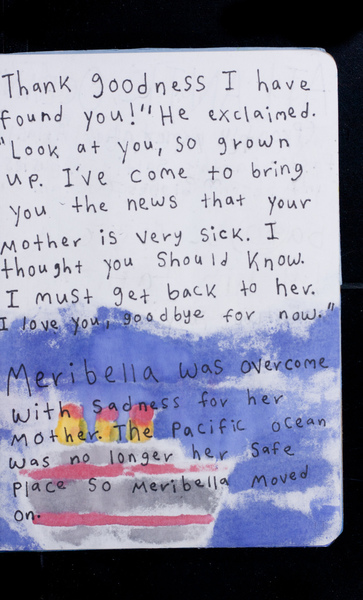 Thank goodness I have
found you!" He exclaimed.
"Look at you, so grown
up. I've come to bring
you the news that your
mother is very sick. I
thought you should know.
I must get back to her.
I love you, goodbye for now."
Meribella was overcome
with sadness for her
mother. The Pacific ocean
was no longer her safe
place so Meribella moved
on.